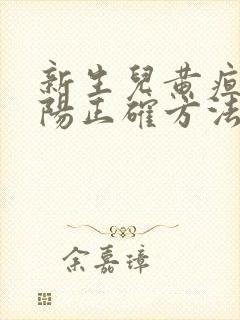 新生兒黃疸
陽正確方法
余嘉璋